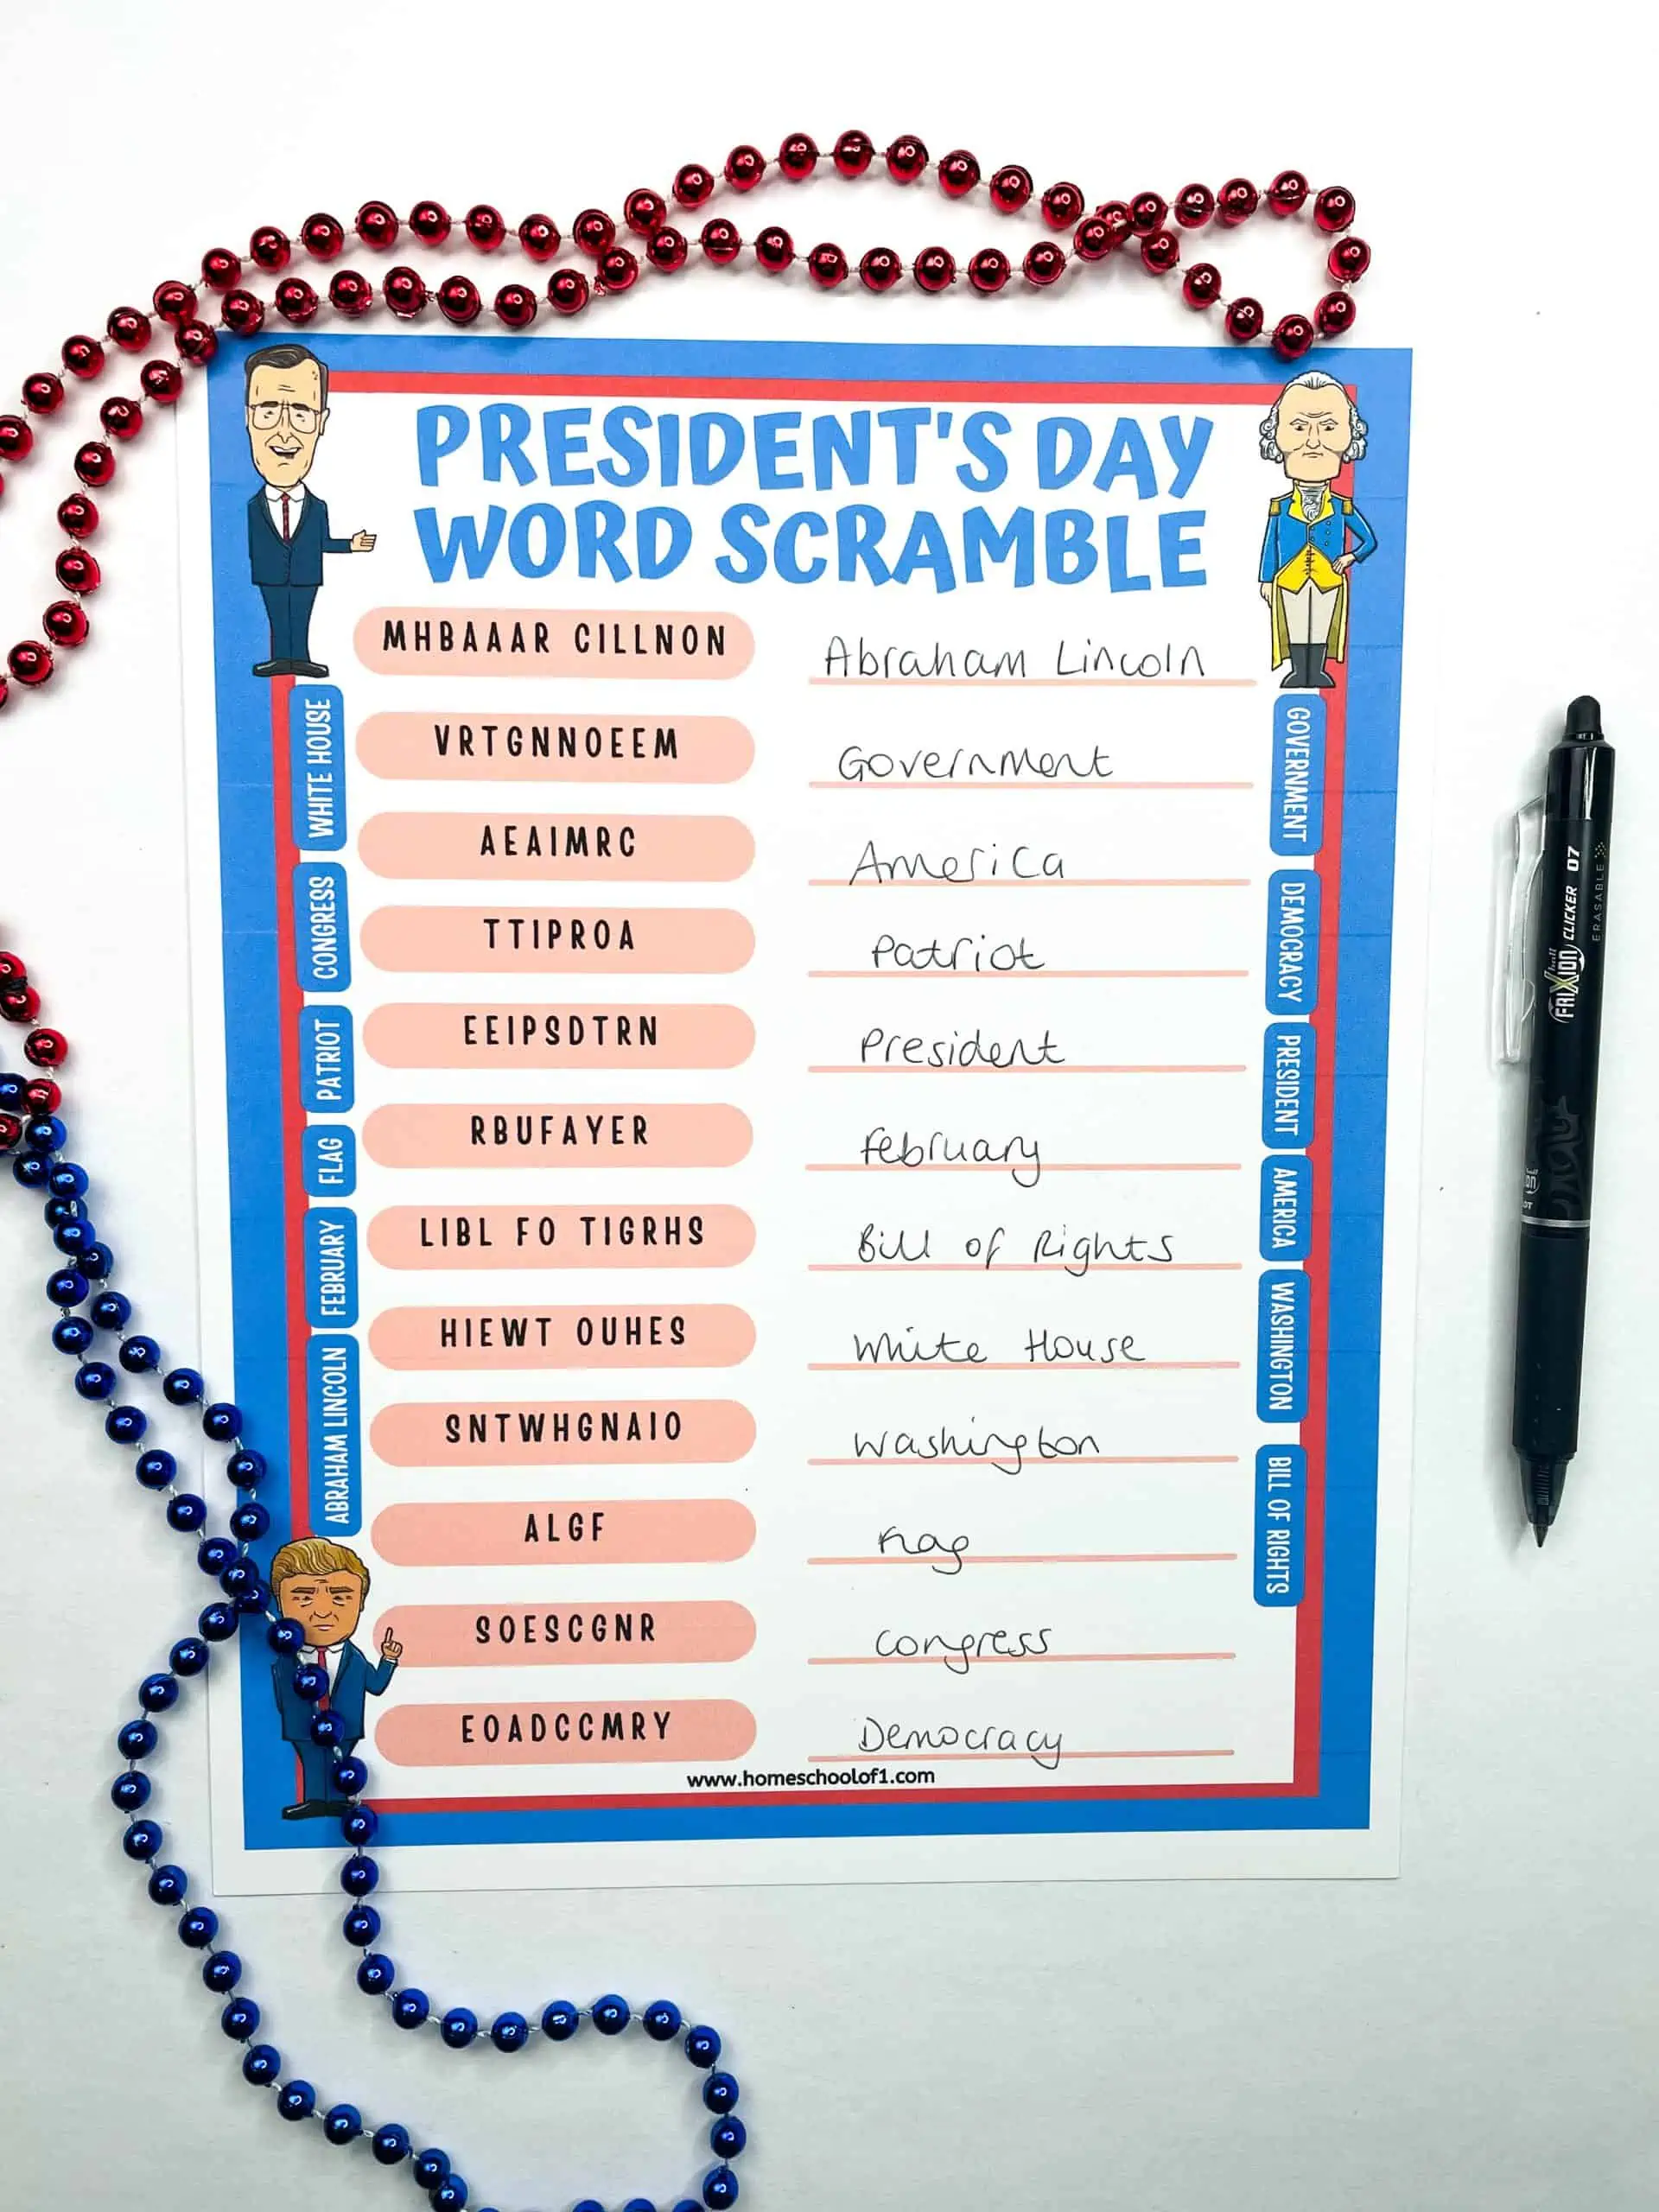 PRESIDENT'S DAY
WORD SCRAMBLE
MHBAAAR CILLNON
Abraham Lincoln
VRTGNNOEEM
Government
AEAIMRC
America
TTIPROA
Patriot
EEIPSDTRN
President
RBUFAYER
February
LIBL FO TIGRHS
Bill of Rights
HIEWT OUHES
White House
SNTWHGNAIO
Washington
ALGF
Flag
SOESCGNR
Congress
EOADCCMRY
Democracy
www.homeschoolof1.com
WHITE HOUSE
CONGRESS
PATRIOT
FLAG
FEBRUARY
ABRAHAM LINCOLN
GOVERNMENT
DEMOCRACY
PRESIDENT
AMERICA
WASHINGTON
BILL OF RIGHTS
FRIXION ball CLICKER 07
ERASABLE